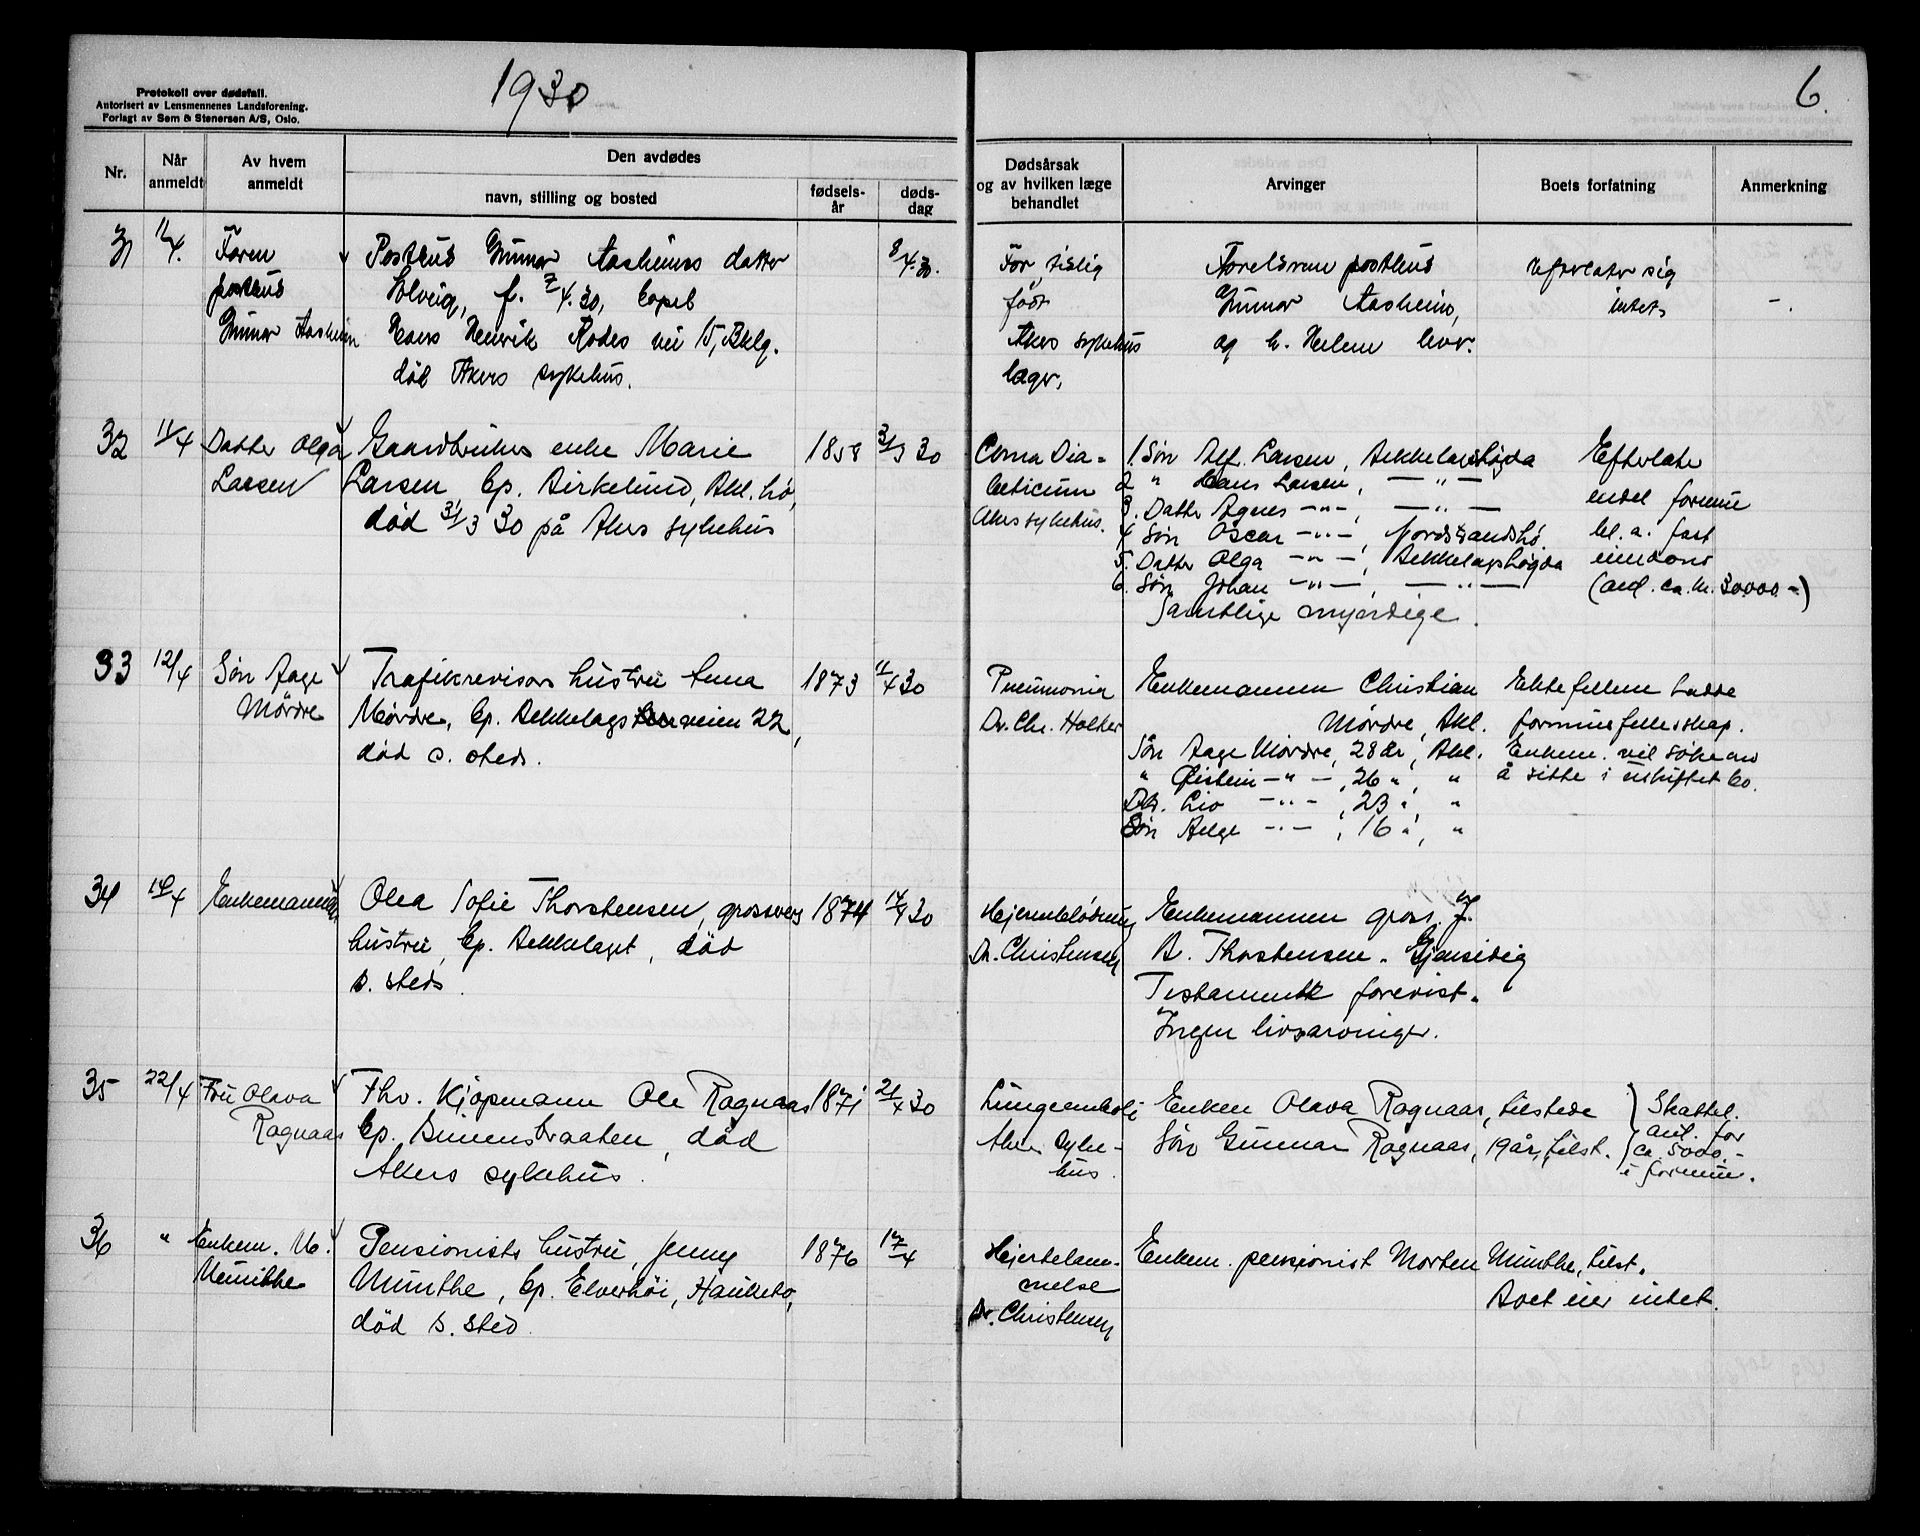 1930
6.
Protokoll over dødsfall.
Autorisert av Lensmennenes Landsforening.
Forlagt av Sem & Stenersen A/S, Oslo.
Nr.
Når anmeldt
Av hvem anmeldt
Den avdødes
navn, stilling og bosted
fødsels-år
døds-dag
Dødsårsak og av hvilken læge behandlet
Arvinger
Boets forfatning
Anmerkning
31
11/4.
Faren
postbud
Gunnar Aasheim
Postbud Gunnar Aasheims datter
Solveig, f. 7/4.30, bopel
Hans Henrik Rodes vei 15, Bklg.
død Akers sykehus.
8/4.30.
For tidlig
født
Akers sykehus
læger.
Foreldrene postbud
Gunnar Aasheim,
og h. Helene
Efterlater sig
intet.
-.
32
11/4
Datter Olga
Larsen
Gaardbruker enke Marie
Larsen, bp. Birkelund, Bkl. hø,
død 31/3 30 på Akers sykehus
1858
31/3 30
Coma Dia-
beticum
Akers sykehus.
1. Søn Alf. Larsen, Bekkelagshøgda
2 " Hans Larsen, — " —
3. Datter Agnes — " —, — " —
4 Søn Oscar — " —, Nordstrandshø
5. Datter Olga — " —, Bekkelagshøgda
6. Søn Johan — " —, — " —
Samtlige myndige.
Efterlater
endel formue
bl. a. fast
eiendom
(anl. ca. kr. 30000 -)
33
12/4
Søn Aage
Mørdre
Trafikrevisors hustru Anna
Mørdre, bp. Bekkelagsveien 22,
død s. steds.
1873
11/4 30
Pneumonia
Dr. Chr. Holter
Enkemannen Christian
Mørdre, Bkl.
Søn Aage Mørdre, 28 år, Bkl.
" Øistein — " —, 26 ", "
Dtr. Liv — " —, 23 ", "
Søn Helge — " —, 16 ", "
Ektefellene hadde
formuesfellesskap.
Enkem. vil søke om
å sitte i uskiftet bo.
34
14/4
Enkemannen
Olea Sofie Thorstensen, grosserers
hustru, bp. Bekkelaget, død
s. steds.
1874
14/4 30
Hjerneblødning
Dr. Christensen
Enkemannen gross. J.
B. Thorstensen. Gjensidig
Testamente forevist.
Ingen livsarvinger.
35
22/4
Fru Olava
Ragnaas
Fhv. Kjøpmann Ole Ragnaas
bp. Buunsbraaten, død
Akers sykehus.
1871
21/4 30
Lungeemboli
Akers syke-
hus.
Enken Olava Ragnaas, tilstede
Søn Gunnar Ragnaas, 19 år, tilst.
Skattel.
anl. for
ca. 5000.-
i formue.
36
"
Enkem. M.
Munthe
Pensionists hustru, Jenny
Munthe, bp. Elverhøi, Hauketo,
død s. sted.
1876
17/4
Hjertelam-
melse
Dr. Christensen
Enkem. pensjonist Morten Munthe, tilst.
Boet eier intet.